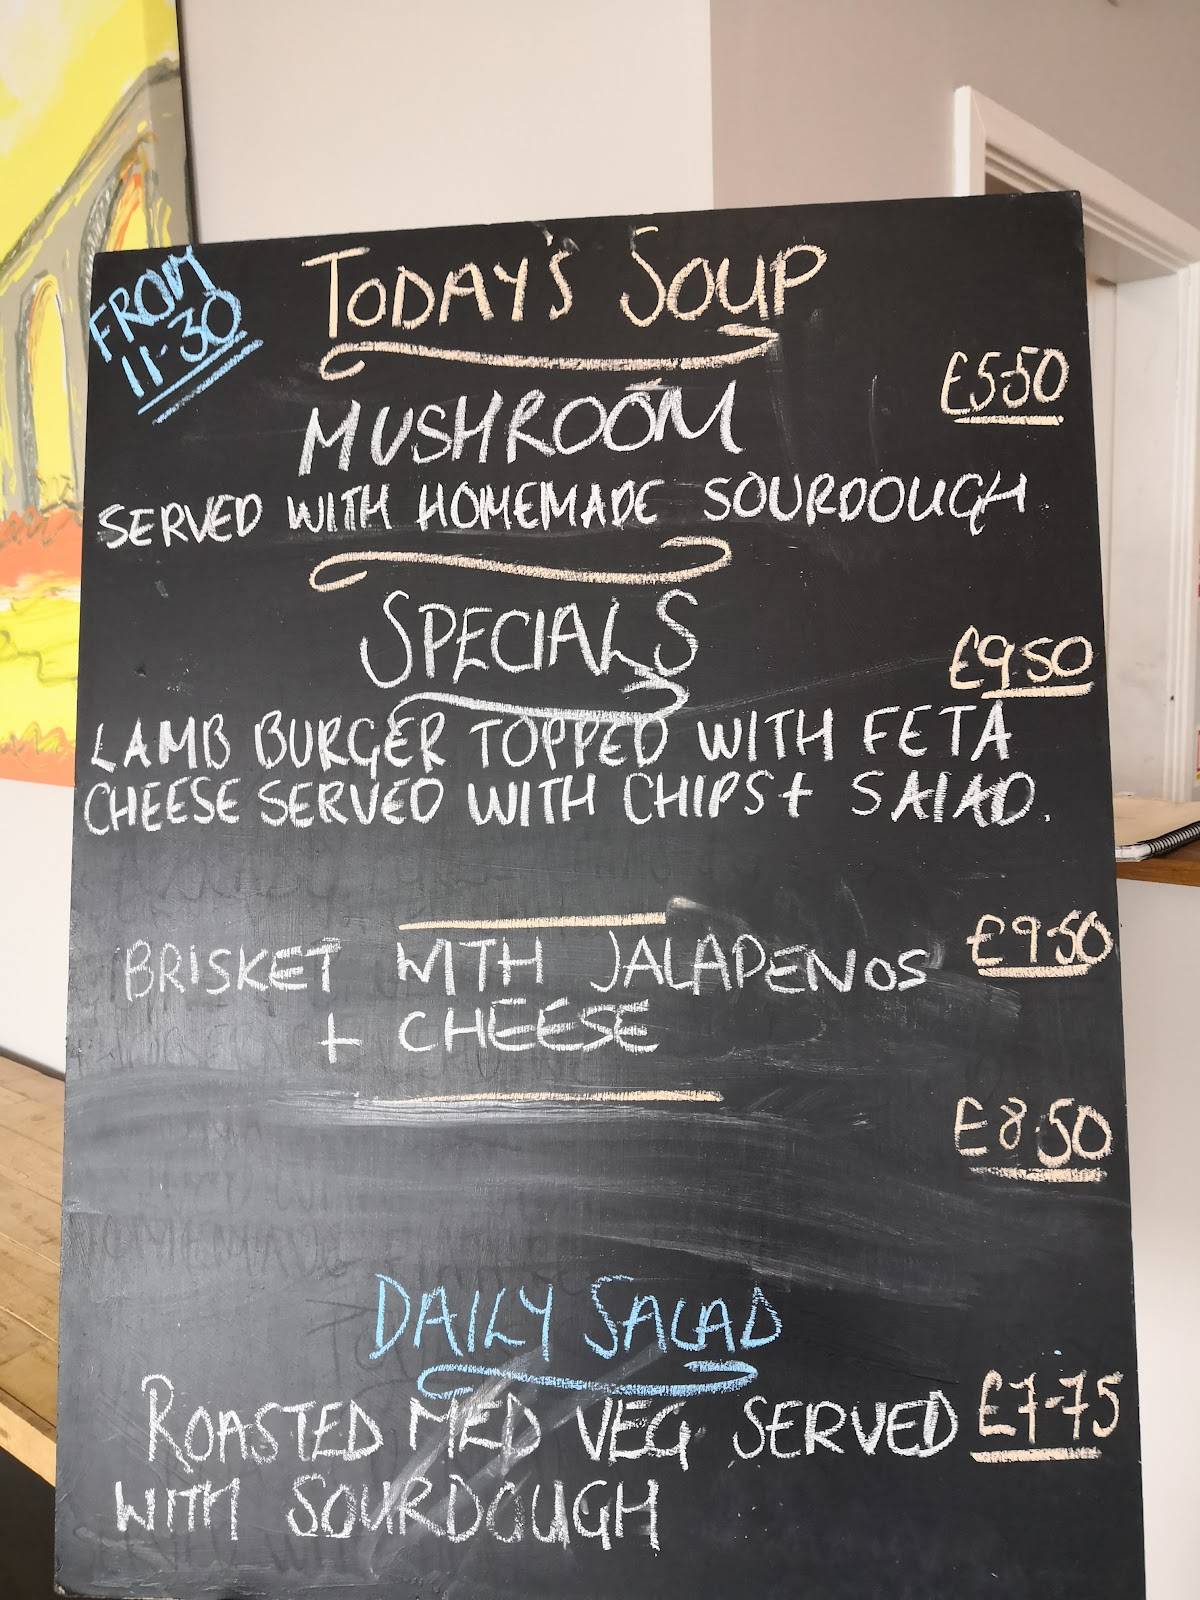 FROM
11-30
TODAY'S SOUP
£5-50
MUSHROOM
SERVED WITH HOMEMADE SOURDOUGH
SPECIALS
£9.50
LAMB BURGER TOPPED WITH FETA
CHEESE SERVED WITH CHIPS + SALAD.
BRISKET WITH JALAPENOS £9.50
+ CHEESE
£8.50
DAILY SALAD
ROASTED MED VEG SERVED £7-75
WITH SOURDOUGH